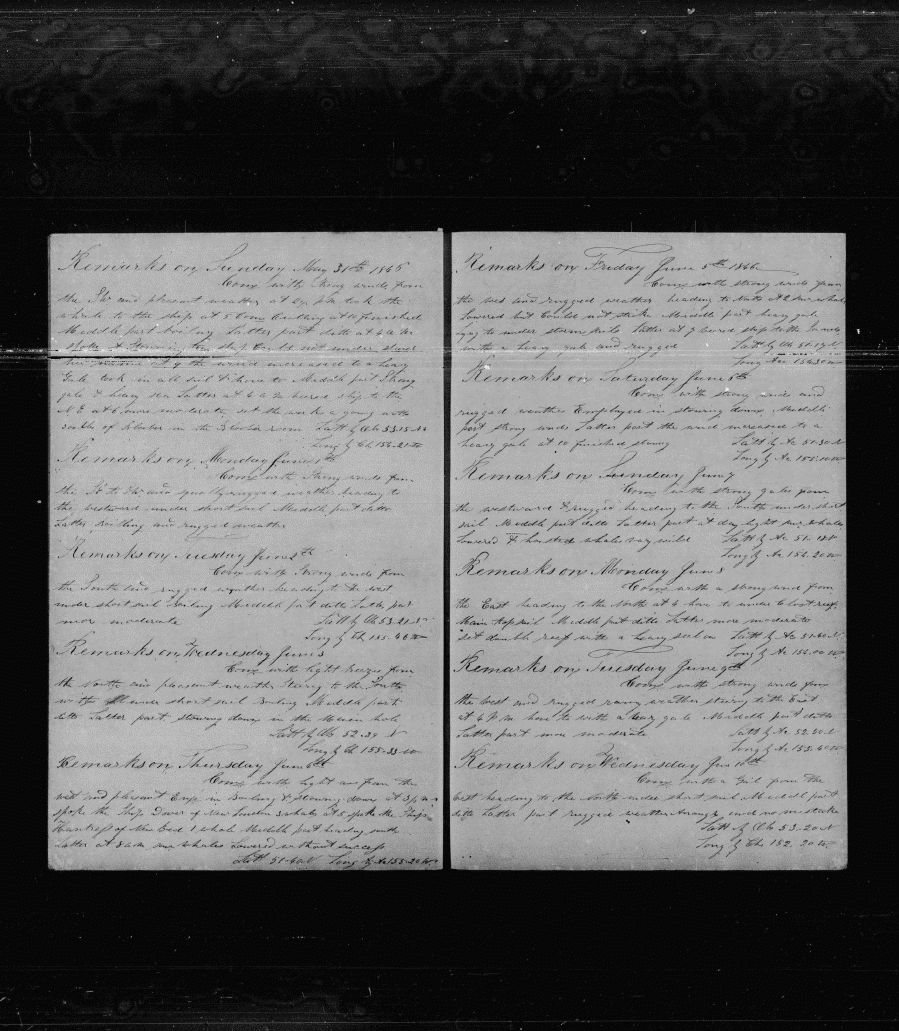 Remarks on Sunday May 31th 1846
Comx with strong winds from
the SW and plesent weather at 2 P.M. took the
whale to the ship at 5 Com Cutting at 10 finished
Meddle part boiling Latter part ditto at 4 A M
spoke ship could not under
at 9 the wind increased to a heavy
Gale took in all sail & hove to Meddle part strong
gale & heavy sea Latter at 4 A M beered ship to the
N E at 6 more moderate set the work a going with
of blubber in the Blubber room Latt by Ch 53.15 N
Long by Ch 156.21 W
Remarks on Monday June 1th
Comx with strong winds from
the S to SW and squaly rugged weather heading to
the westward under short sail Meddle part ditto
Latter boiling and rugged weather
Remarks on Tuesday June 2th
Comx with strong winds from
the South and rugged weather heading to the west
under short sail Boiling Meddle part ditto Latter part
more moderate Latt by Ch 53.21 N
Long by Ch 155.46 W
Remarks on Wednesday June 3
Comx with light breezes from
the North and plesent weather steering to the South
with under short sail Boiling Meddle part
ditto Latter part stowing down in the Main hole
Latt by Ch 52.29 N
Long by Ch 155.33 W
Remarks on Thursday June 4th
Comx with light airs from the
west and plesent Emp in Boiling & stowing down at 3 P M
spoke the Ship Dover of New London 3 whales at 5 spoke the Ship
Huntress of New Bed 1 whale Meddle part heading south
Latter at 8 AM saw whales Lowered without success
Latt 51.40 N Long by Ac 155.20 W
Remarks on Friday June 5th 1846
Comx with strong winds from
the wes and rugged weather heading to at 2 saw whales
Lowered but Could not strike Meddle part heavy gale
lying to under storm sails Latter at 9 beered ship to the
with a heavy gale and rugged Latt by Ch 51.17 N
Long Ac 154.30 W
Remarks on Saturday June 6th
Comx with strong winds and
rugged weather Employed in stowing down Meddle
part strong winds Latter part the wind increased to a
heavy gale at 10 finished stowing Latt by Ac 51.30 N
Long by Ac 155.10 W
Remarks on Sunday June 7
Comx with strong gales from
the westward & rugged heading to the South under short
sail Meddle part ditto Latter part at day light saw whales
Lowered & hunted whales very wild Latt by Ac 51.18 N
Long by Ac 154.20 W
Remarks on Monday June 8
Comx with a strong wind from
the East heading to the North at 4 hove to under Close reef
Main topsail Meddle part ditto Latter more moderate
set double reef with a heavy sea on Latt by Ac 51.40 N
Long by Ac 154.00 W
Remarks on Tuesday June 9th
Comx with strong winds from
the West and rugged rainy weather steering to the East
at 6 P M hove to with a heavy gale Meddle part ditto
Latter part more moderate Latt by Ac 52.30 N
Long by Ac 153.40 W
Remarks on Wednesday June 10th
Comx with a Gail from the
West heading to the North under short sail Meddle part
ditto Latter part rugged weather and no mistake
Latt by Ch 53.20 N
Long by Ch 152.20 W